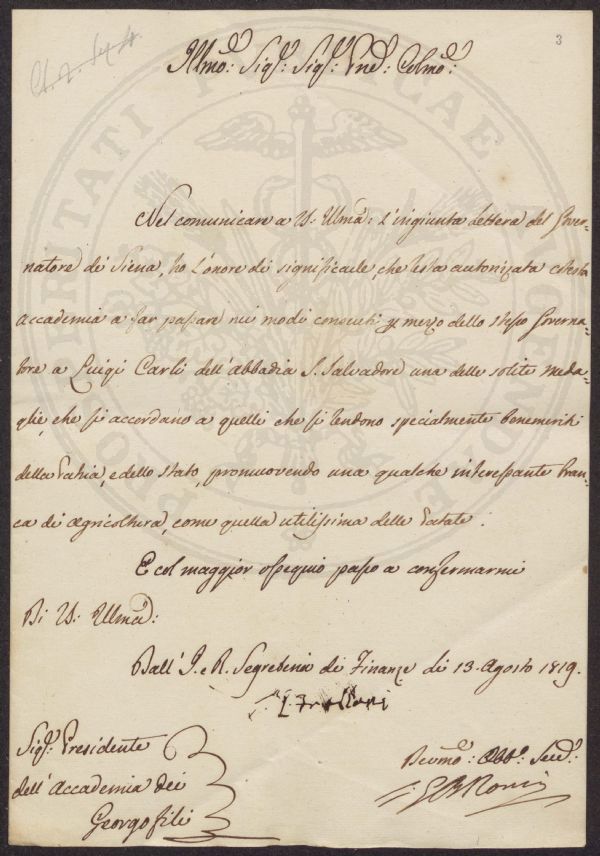 3
Illmo: Sigr: Sigr: Pne: Colmo:
Nel comunicare a VS. Illma: l'ingiunta lettera del Gover-
natore di Siena, ho l'onore di significarle, che resta autorizzata cotesta
Accademia a far passare nei modi consueti p mezzo dello stesso Governa-
tore a Luigi Carli dell'abbadia S. Salvadore una delle solite meda-
glie, che si accordano a quelli che si rendono specialmente benemeriti
della Patria, e dello stato, promuovendo una qualche interessante bran-
ca di agricoltura, come quella utilissima delle Patate.
E col maggior ossequio passo a confermarmi
Di VS. Illma:
Dall' I. e R. Segreteria di Finanze li 13. Agosto 1819.
Sigr: Presidente
dell'Accademia dei
Georgofili
Devmo: Obbo: Serv:
PROSPERITATI PUBLICAE AUGENDAE